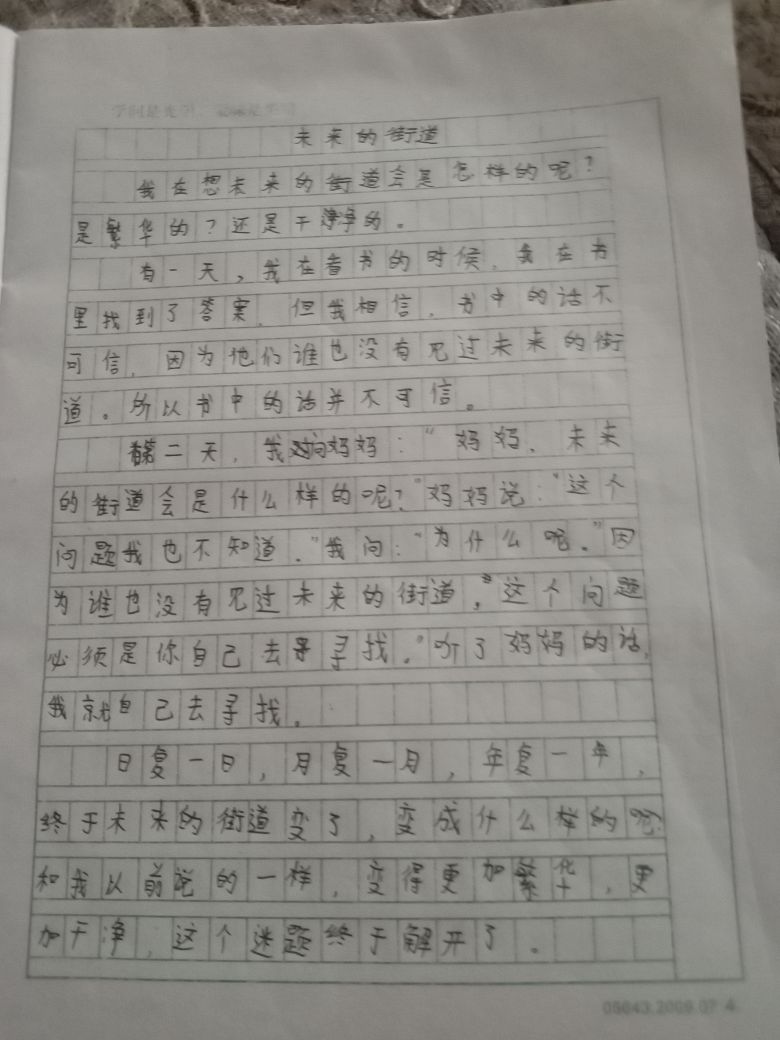 未来的街道
我在想未来的街道会是怎样的呢？
是繁华的？还是干净的。
有一天，我在看书的时候，我在书
里找到了答案，但我相信，书中的话不
可信，因为他们谁也没有见过未来的街
道。所以书中的话并不可信。
第二天，我问妈妈：“妈妈，未来
的街道会是什么样的呢？”妈妈说：“这个
问题我也不知道。”我问：“为什么呢。”因
为谁也没有见过未来的街道。”这个问题
必须是你自己去寻找。”听了妈妈的话，
我就自己去寻找。
日复一日，月复一月，年复一年，
终于未来的街道变了，变成什么样的呢？
和我以前说的一样，变得更加繁华，更
加干净，这个迷题终于解开了。
05643.2009.07 4